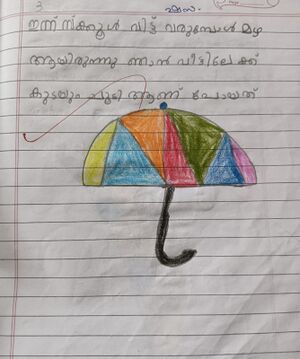 3
ഇന്ന് സ്ക്കൂൾ വിട്ട് വരുമ്പോൾ മഴ
ആയിരുന്നു ഞാൻ വീട്ടിലേക്ക്
കുടയും ചൂടി ആണ് പോയത്